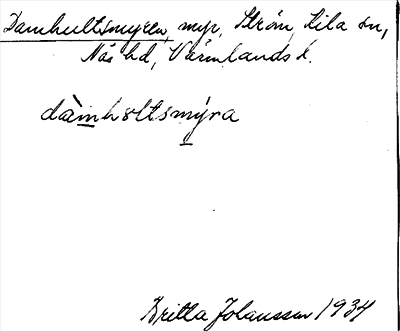 Damhultsmyren, myr, Ström, Kila sn,
Näs hd, Värmlands l.
dàmhɷltsmýra
Britta Johansson 1934